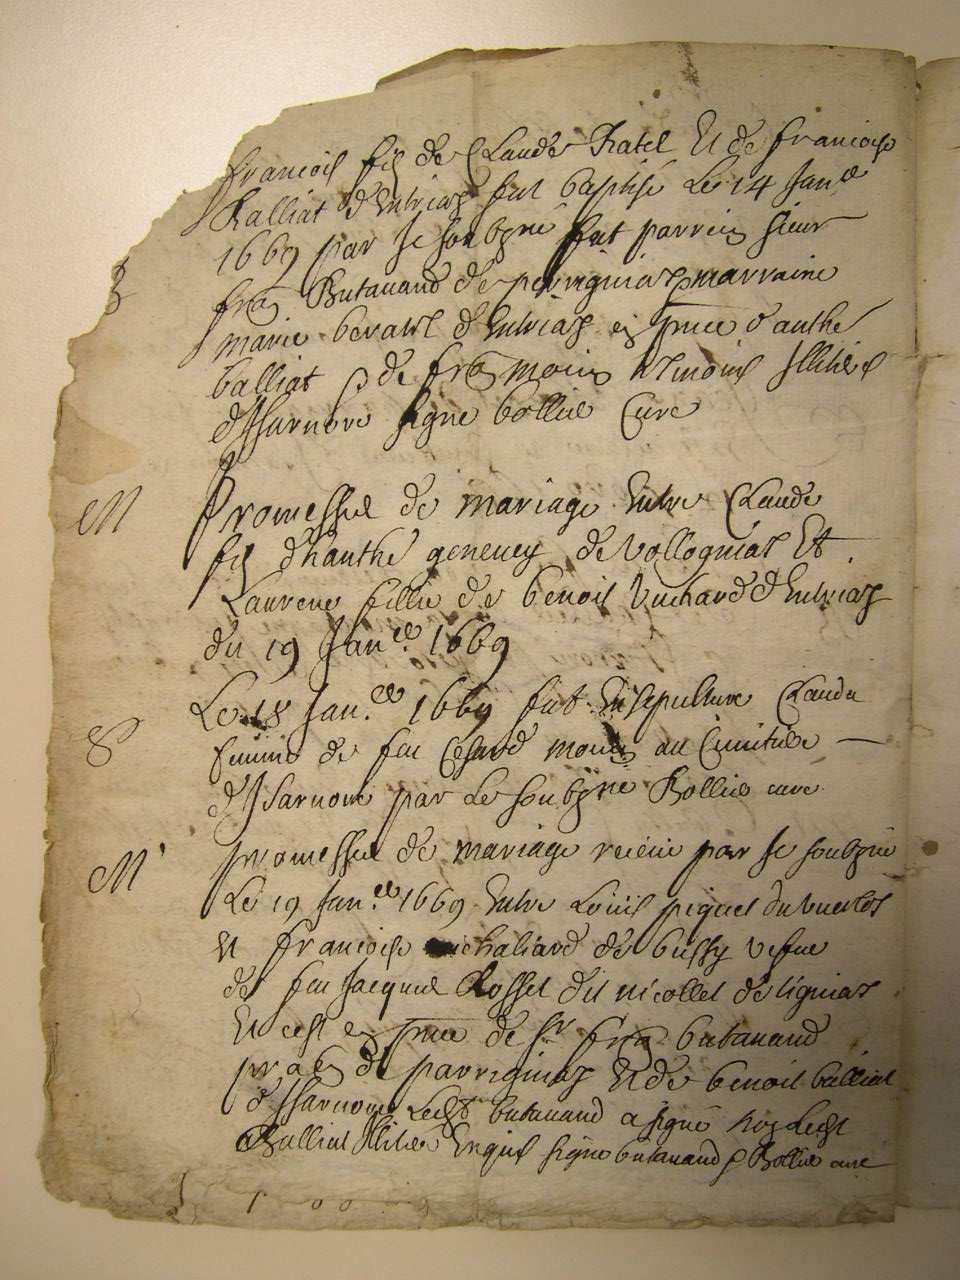 francois fils de Claude Ratel Et de francoise
Balliat d'Entrias fut baptise Le 14 Jan.er
1669 par Je soubzne fut parrein sieur
fra Butavand de parrignias marraine
marie berard d'Entrias en pnce d'anthe
balliat & de fra moins tesmoins Illiteres
d'Isarnore signe bollie Cure
M Promesses de mariage Entre Claude
fils d'hanthe genevey de vollognias Et
Laurence fillie de benoit vuchard d'Entrias
du 19 Jan.er 1669
S Le 18 Jan.er 1669 fut Ensepulture Clauda
femme de feu Cesard moin au Cimitiere
d'Isarnore par Le soubzne Bollie cure
M promesses de mariage receue par Je soubzne
Le 19 Jan.er 1669 Entre Louis piquet du
et francoise de bussy vefue
de feu Jacques Rosset dit nicollet de lignias
Et cest en pnce de Sr fra butavand
de parrignias Et de benoit balliat
d'Isarnore Ledt butavand a signe non Ledt
Balliat Illitere Enquis signe butavand & Bollie cure